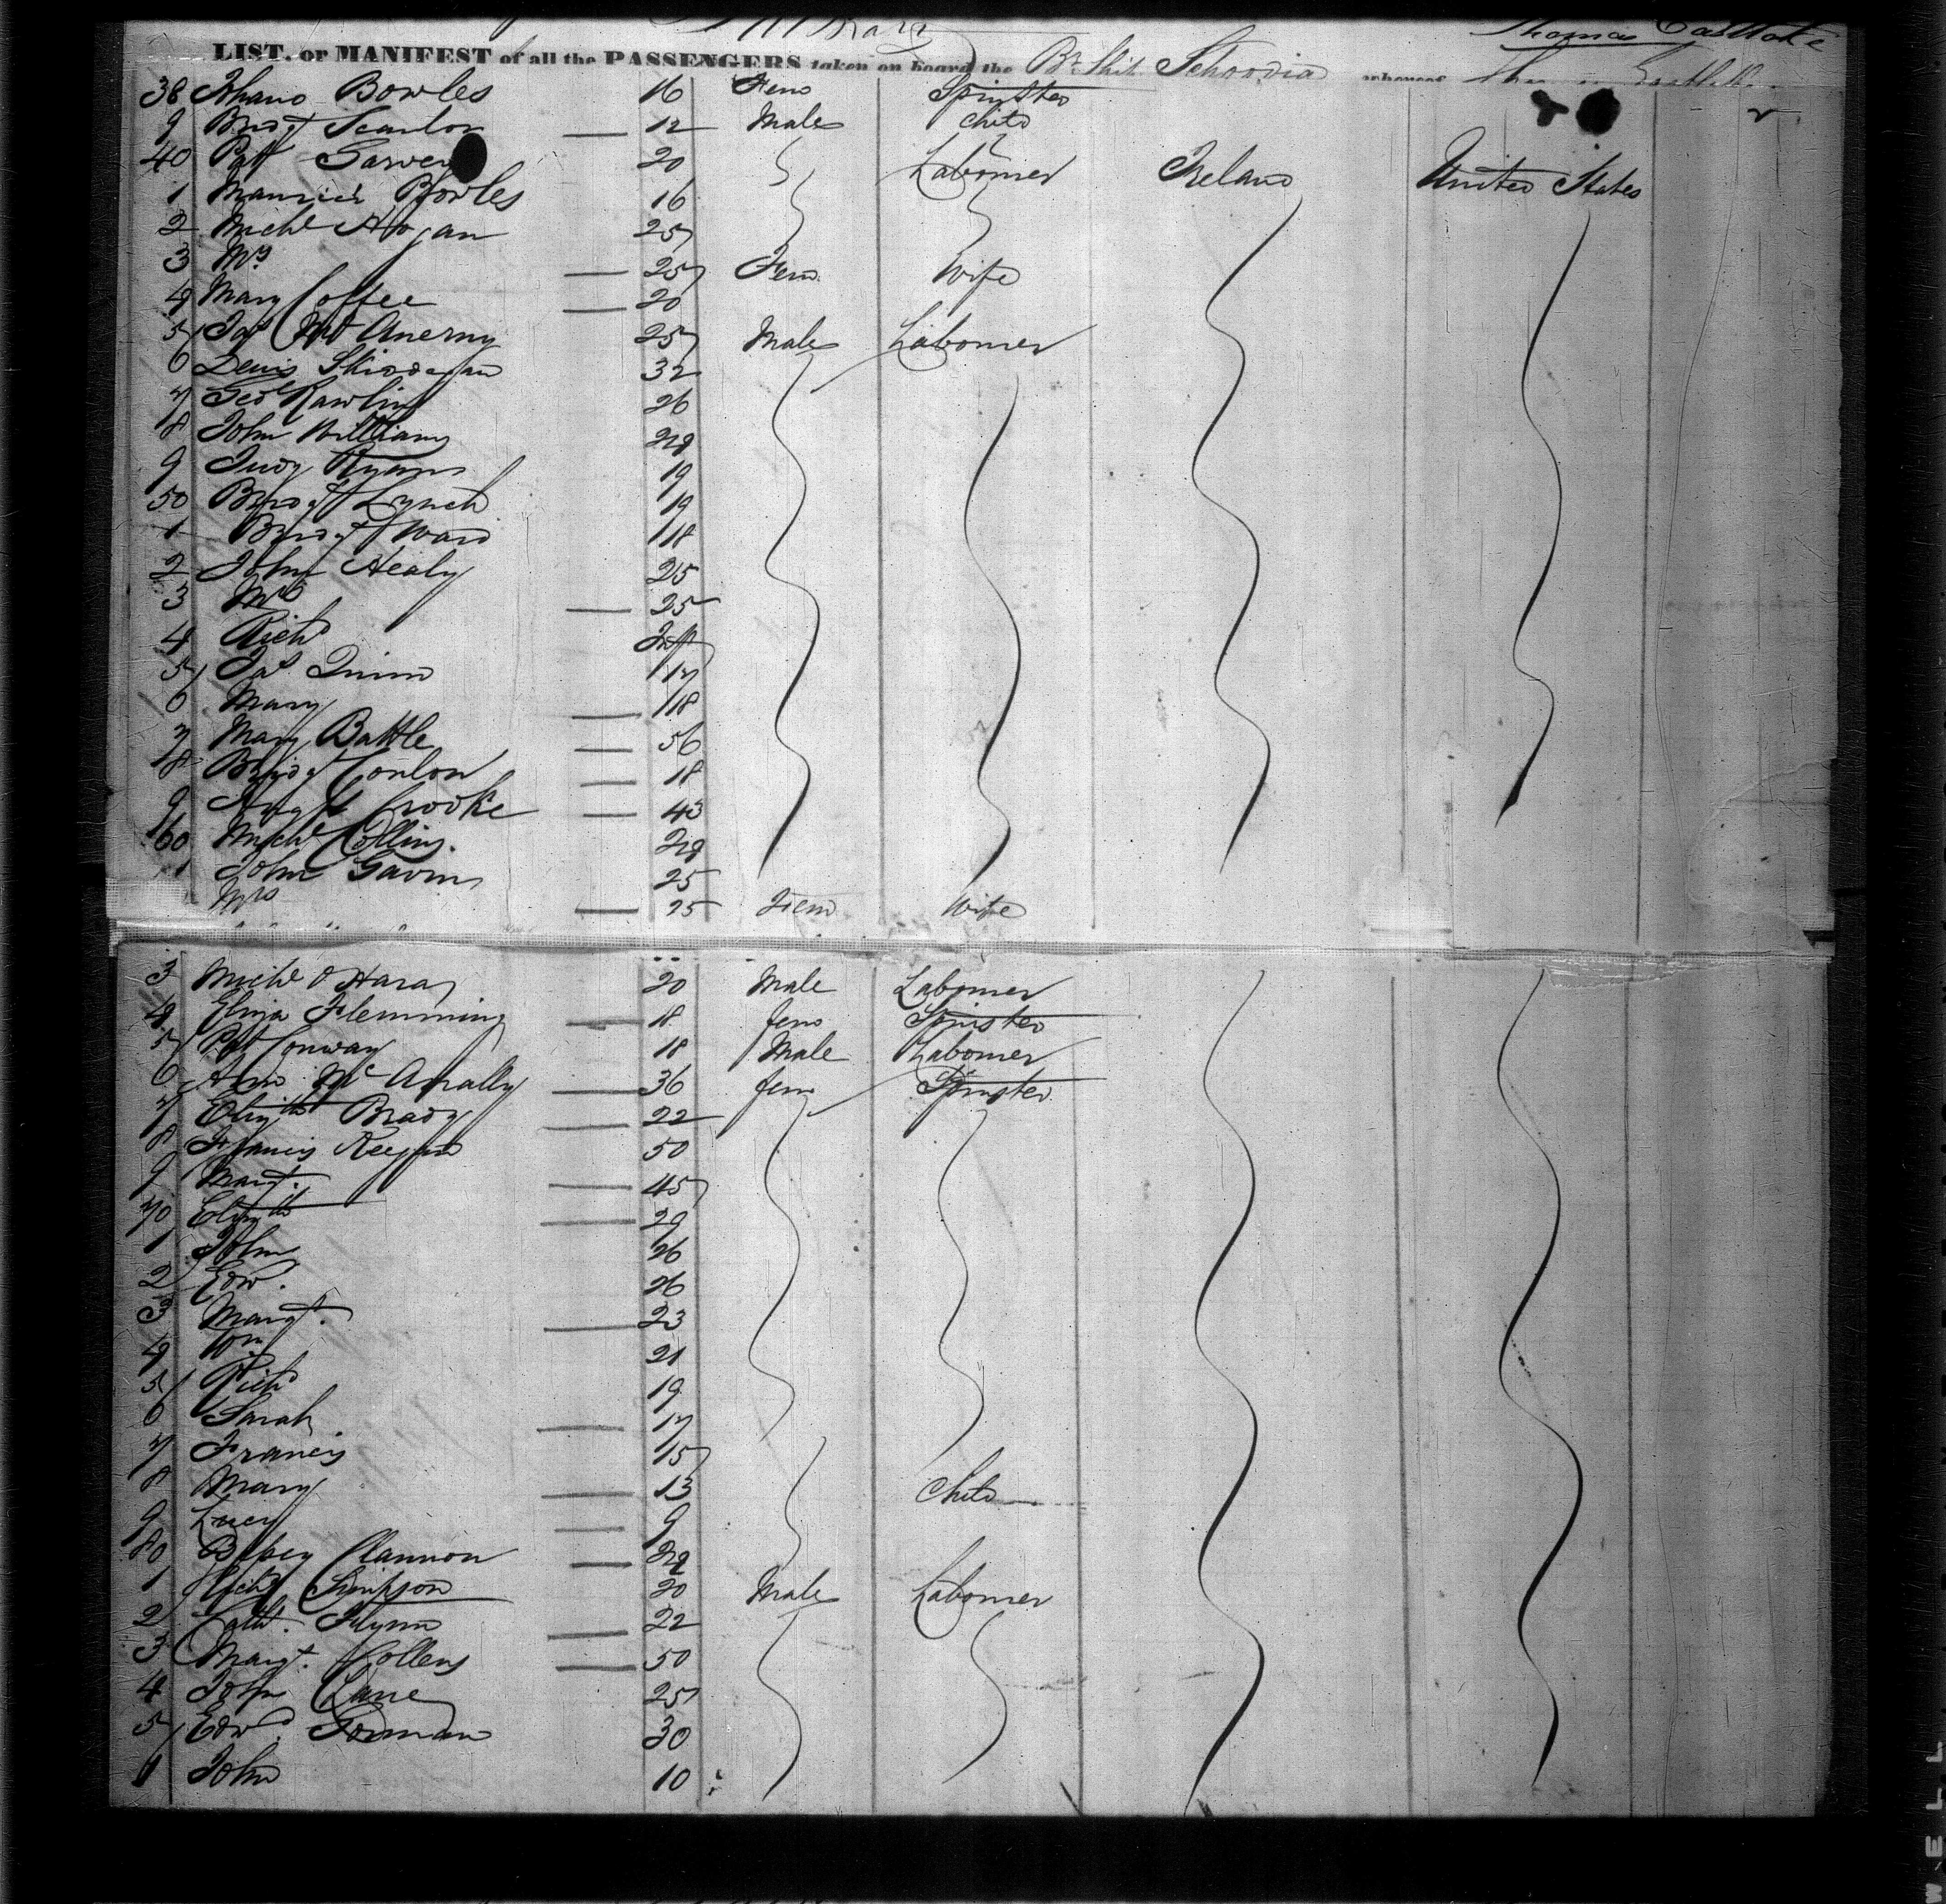 Thomas
LIST, or MANIFEST of all the PASSENGERS taken on board the Br. Ship Schoodia whereof
38 Bowles 16 Fem Spinster
9 Bridgt Scanlon 12 Male Child
40 Pat Garvey 20 Labourer Ireland United States
1 Maurice Bowles 16
2 Michl Hogan 25
3 Mrs 25 Fem Wife
4 Mary Coffee 20
5 Jas 25 Male Labourer
6 Denis 32
7 Geo Rawlins 26
8 John Williams 28
9 Judy Ryan 19
50 Bridgt Lynch 19
1 Bridgt Ward 18
2 John Healy 25
3 Mrs 25
4 Richd Inft
5 Jas Quinn 17
6 Mary 18
7 Mary Battle 56
8 Bridgt Conlon 18
9 Crooke 43
60 Michl Collins. 28
1 John Gavin 25
Mrs 25 Fem Wife
3 Michl O Hara 20 Male Labourer
4 Eliza Flemming 18 fem Spinster
5 Pat Conway 18 Male Labourer
6 Ann Mc Anally 36 fem Spinster
7 Elizth Brady 22
8 Francis Keegan 50
9 Margt. 45
70 Elizth 29
1 John 26
2 Edw. 26
3 Margt. 23
4 Wm 21
5 Richd 19
6 Sarah 17
7 Francis 15
8 Mary 13 Child
9 Lucy 9
80 Betsey Clannon
1 Simpson 20 Male Labourer
2 Cath. Flynn 22
3 Margt. Collens 50
4 John Cane 25
5 Edwd. Gorman 30
1 John 10
WELL